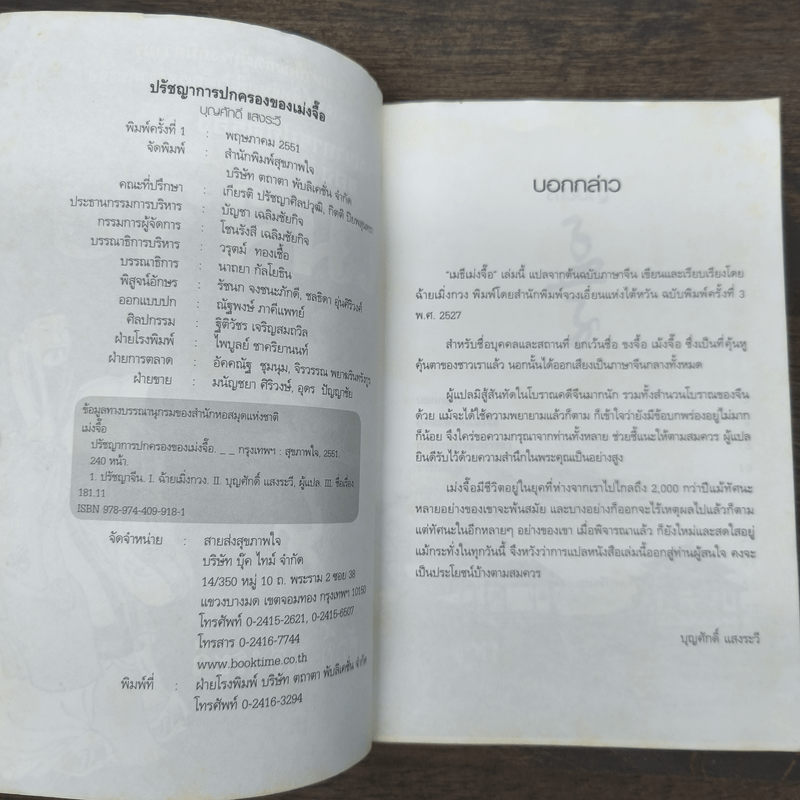 ปรัชญาการปกครองของเม่งจื๊อ
บุญศักดิ์ แสงระวี
พิมพ์ครั้งที่ 1 : พฤษภาคม 2551
จัดพิมพ์ : สำนักพิมพ์สุขภาพใจ
บริษัท ตถาตา พับลิเคชั่น จำกัด
คณะที่ปรึกษา : เกียรติ ปรัชญาศิลปวุฒิ, กิตติ
ประธานกรรมการบริหาร : บัญชา เฉลิมชัยกิจ
กรรมการผู้จัดการ : โชนรังสี เฉลิมชัยกิจ
บรรณาธิการบริหาร : วรุตม์ ทองเชื้อ
บรรณาธิการ : นาถยา กัลโยธิน
พิสูจน์อักษร : รัชนก จงชนะภักดี, ชลธิดา อุ่นศิริวงศ์
ออกแบบปก : ณัฐพงษ์ ภาคีแพทย์
ศิลปกรรม : ฐิติวัชร เจริญสมถวิล
ฝ่ายโรงพิมพ์ : ไพบูลย์ ชาคริยานนท์
ฝ่ายการตลาด : อัคคณัฐ ชุมนุม, จิรวรรณ
ฝ่ายขาย : มนัญชยา ศิริวงษ์, อุดร ปัญญาชัย
ข้อมูลทางบรรณานุกรมของสำนักหอสมุดแห่งชาติ
เม่งจื๊อ
ปรัชญาการปกครองของเม่งจื๊อ. _ _ กรุงเทพฯ : สุขภาพใจ, 2551.
240 หน้า.
1. ปรัชญาจีน. I. ฉ้ายเมิ่งกวง. II. บุญศักดิ์ แสงระวี, ผู้แปล. III. ชื่อเรื่อง
181.11
ISBN 978-974-409-918-1
จัดจำหน่าย : สายส่งสุขภาพใจ
บริษัท บุ๊ค ไทม์ จำกัด
14/350 หมู่ 10 ถ. พระราม 2 ซอย 38
แขวงบางมด เขตจอมทอง กรุงเทพฯ 10150
โทรศัพท์ 0-2415-2621, 0-2415-6507
โทรสาร 0-2416-7744
www.booktime.co.th
พิมพ์ที่ : ฝ่ายโรงพิมพ์ บริษัท ตถาตา พับลิเคชั่น จำกัด
โทรศัพท์ 0-2416-3294
บอกกล่าว
“เมธีเม่งจื๊อ” เล่มนี้ แปลจากต้นฉบับภาษาจีน เขียนและเรียบเรียงโดย
ฉ้ายเมิ่งกวง พิมพ์โดยสำนักพิมพ์จวงเอี๋ยนแห่งไต้หวัน ฉบับพิมพ์ครั้งที่ 3
พ.ศ. 2527
สำหรับชื่อบุคคลและสถานที่ ยกเว้นชื่อ ขงจื๊อ เม้งจื๊อ ซึ่งเป็นที่คุ้นหู
คุ้นตาของชาวเราแล้ว นอกนั้นได้ออกเสียงเป็นภาษาจีนกลางทั้งหมด
ผู้แปลมิสู้สันทัดในโบราณคดีจีนมากนัก รวมทั้งสำนวนโบราณของจีน
ด้วย แม้จะได้ใช้ความพยายามแล้วก็ตาม ก็เข้าใจว่ายังมีข้อบกพร่องอยู่ไม่มาก
ก็น้อย จึงใคร่ขอความกรุณาจากท่านทั้งหลาย ช่วยชี้แนะให้ตามสมควร ผู้แปล
ยินดีรับไว้ด้วยความสำนึกในพระคุณเป็นอย่างสูง
เม่งจื๊อมีชีวิตอยู่ในยุคที่ห่างจากเราไปไกลถึง 2,000 กว่าปีแม้ทัศนะ
หลายอย่างของเขาจะพ้นสมัย และบางอย่างก็ออกจะไร้เหตุผลไปแล้วก็ตาม
แต่ทัศนะในอีกหลายๆ อย่างของเขา เมื่อพิจารณาแล้ว ก็ยังใหม่และสดใสอยู่
แม้กระทั่งในทุกวันนี้ จึงหวังว่าการแปลหนังสือเล่มนี้ออกสู่ท่านผู้สนใจ คงจะ
เป็นประโยชน์บ้างตามสมควร
บุญศักดิ์ แสงระวี